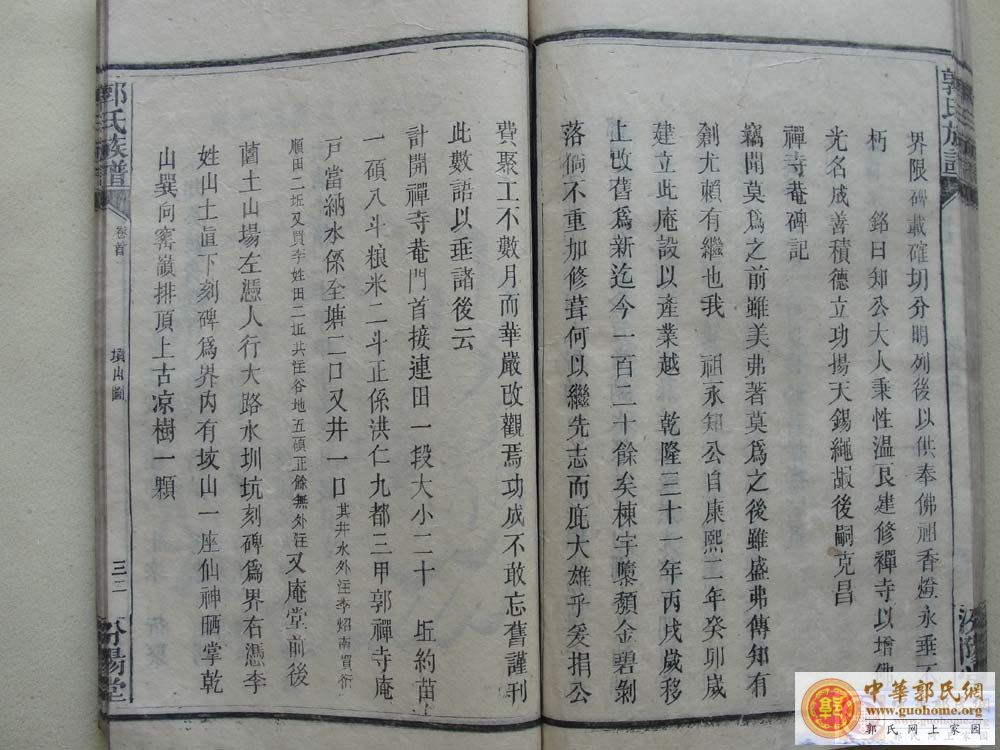 郭氏族譜
界限碑載確切分明列後以供奉佛祖香燈永垂不
朽 銘曰知公大人秉性溫良建修禪寺以增佛
光名成善積德立功揚天錫繩嘏後嗣克昌
禪寺菴碑記
竊聞莫爲之前雖美弗著莫爲之後雖盛弗傳知有
創尤賴有繼也我 祖永知公自康熙二年癸卯歲
建立此庵設以產業越 乾隆三十一年丙戌歲移
上改舊爲新迄今一百二十餘矣棟宇隳頹金碧剝
落倘不重加修葺何以繼先志而庇大雄乎爰捐公
費聚工不數月而華嚴改觀焉功成不敢忘舊謹刊
此數語以垂諸後云
計開禪寺菴門首接連田一段大小二十 坵約苗
一碩八斗粮米二斗正係洪仁九都三甲郭禪寺庵
戸當納水係至塘二口又井一口其井水外注李
順田二坵又買李姓田二坵共注谷地五碩正餘無外注又庵堂前後
菌土山場左憑人行大路水圳坑刻碑爲界右憑李
姓山土直下刻碑爲界內有坟山一座仙神晒掌乾
山巽向窨巔排頂上古凉樹一顆
郭氏族譜
卷首
墳山圖
三二
汾陽堂
中華郭氏網
www.guohome.org
郭氏网上家园